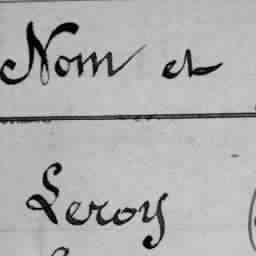 Nom et
Leroy